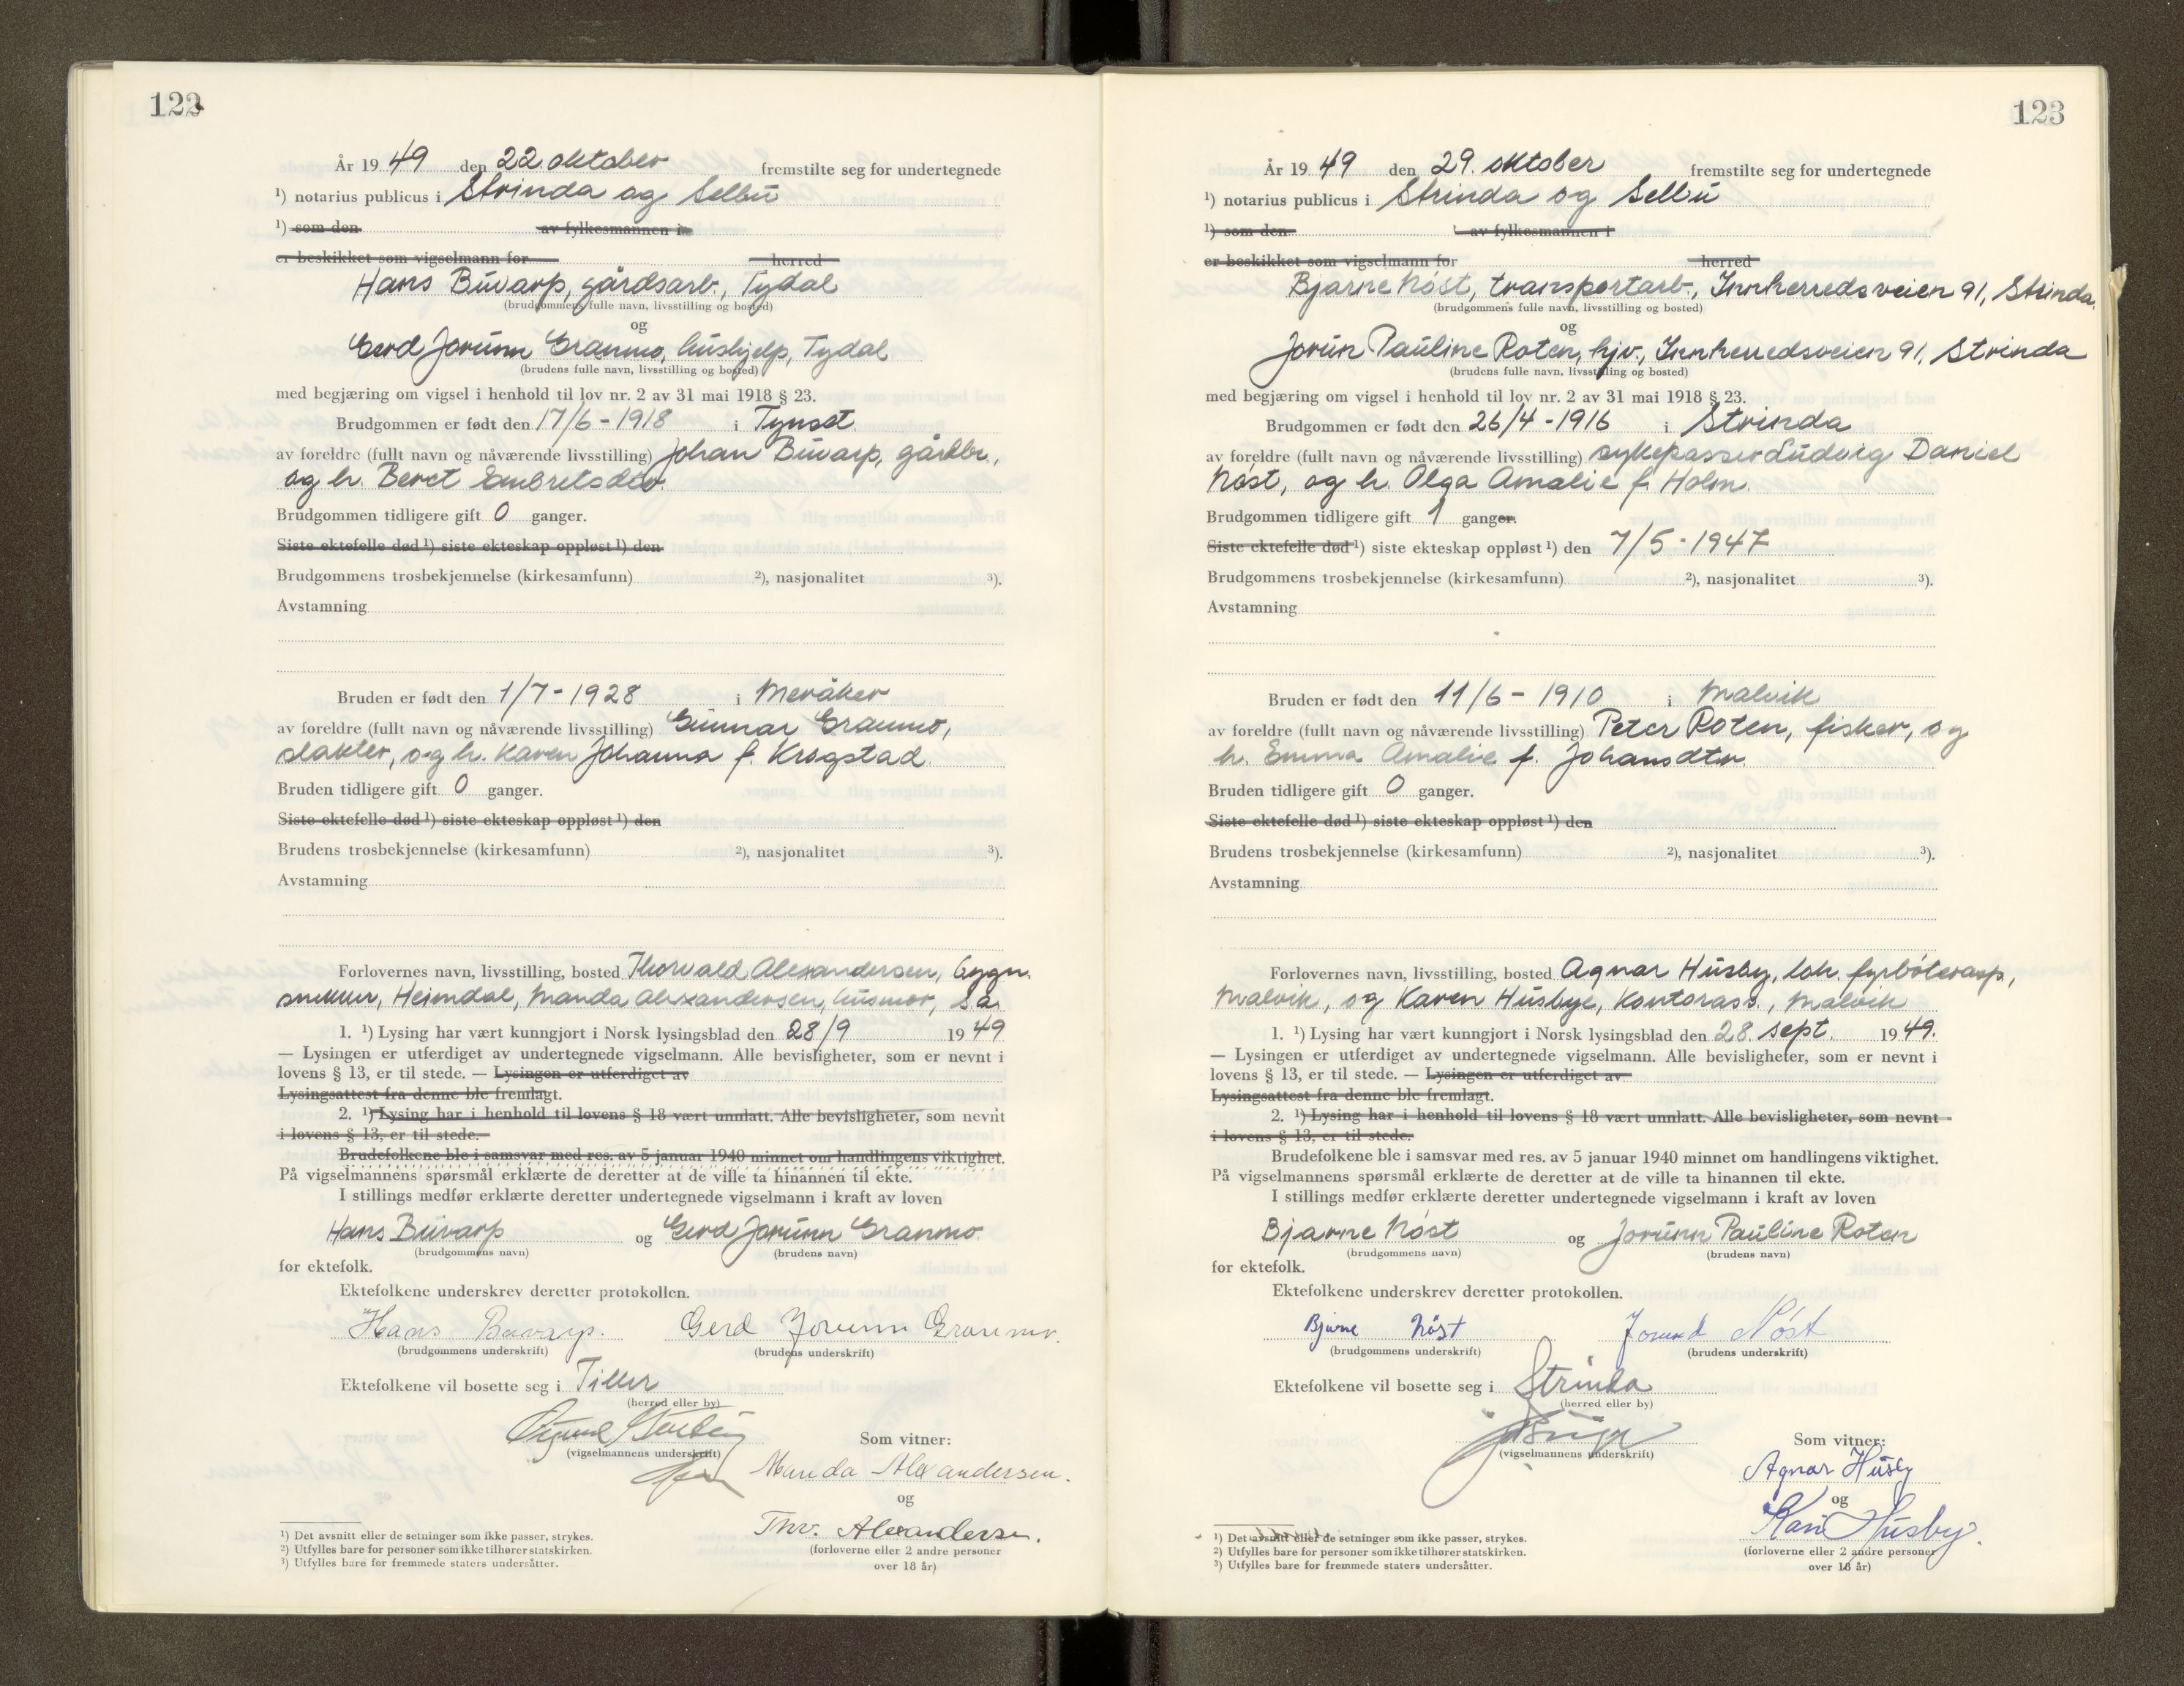 122
År 1949 den 22. oktober fremstilte seg for undertegnede
¹) notarius publicus i Strinda og Selbu
¹) som den av fylkesmannen i
er beskikket som vigselmann for herred
Hans Buvarp, gårdsarb., Tydal
(brudgommens fulle navn, livsstilling og bosted)
og
Gerd Jorunn Granmo, hushjelp, Tydal
(brudens fulle navn, livsstilling og bosted)
med begjæring om vigsel i henhold til lov nr. 2 av 31 mai 1918 § 23.
Brudgommen er født den 17/6-1918 i Tynset
av foreldre (fullt navn og nåværende livsstilling) Johan Buvarp, gårdbr.,
og h. Beret Embretsdtr.
Brudgommen tidligere gift 0 ganger.
Siste ektefelle død ¹) siste ekteskap oppløst ¹) den
Brudgommens trosbekjennelse (kirkesamfunn) ²), nasjonalitet ³).
Avstamning
Bruden er født den 1/7-1928 i Meråker
av foreldre (fullt navn og nåværende livsstilling) Gunnar Granmo,
slakter, og h. Karen Johanna f. Krogstad
Bruden tidligere gift 0 ganger.
Siste ektefelle død ¹) siste ekteskap oppløst ¹) den
Brudens trosbekjennelse (kirkesamfunn) ²), nasjonalitet ³).
Avstamning
Forlovernes navn, livsstilling, bosted Thorvald Alexandersen, bygn.
snekker, Heimdal, Manda Alexandersen, husmor, s.a.
1. ¹) Lysing har vært kunngjort i Norsk lysingsblad den 28/9 1949
— Lysingen er utferdiget av undertegnede vigselmann. Alle bevisligheter, som er nevnt i
lovens § 13, er til stede. — Lysingen er utferdiget av
Lysingsattest fra denne ble fremlagt.
2. ¹) Lysing har i henhold til lovens § 18 vært unnlatt. Alle bevisligheter, som nevnt
i lovens § 13, er til stede.
Brudefolkene ble i samsvar med res. av 5 januar 1940 minnet om handlingens viktighet.
På vigselmannens spørsmål erklærte de deretter at de ville ta hinannen til ekte.
I stillings medfør erklærte deretter undertegnede vigselmann i kraft av loven
Hans Buvarp og Gerd Jorunn Granmo
(brudgommens navn) (brudens navn)
for ektefolk.
Ektefolkene underskrev deretter protokollen.
Hans Buvarp. Gerd Jorunn Granmo.
(brudgommens underskrift) (brudens underskrift)
Ektefolkene vil bosette seg i Tiller
(herred eller by)
(vigselmannens underskrift) Som vitner:
Manda Alexandersen.
og
Thv. Alexandersen.
(forloverne eller 2 andre personer
over 18 år)
¹) Det avsnitt eller de setninger som ikke passer, strykes.
²) Utfylles bare for personer som ikke tilhører statskirken.
³) Utfylles bare for fremmede staters undersåtter.
123
År 1949 den 29. oktober fremstilte seg for undertegnede
¹) notarius publicus i Strinda og Selbu
¹) som den av fylkesmannen i
er beskikket som vigselmann for herred
Bjarne Nøst, transportarb., Innherredsveien 91, Strinda,
(brudgommens fulle navn, livsstilling og bosted)
og
Jorun Pauline Roten, hjv., Innherredsveien 91, Strinda
(brudens fulle navn, livsstilling og bosted)
med begjæring om vigsel i henhold til lov nr. 2 av 31 mai 1918 § 23.
Brudgommen er født den 26/4-1916 i Strinda
av foreldre (fullt navn og nåværende livsstilling) sykepasser Ludvig Daniel
Nøst, og h. Olga Amalie f. Holm.
Brudgommen tidligere gift 1 ganger.
Siste ektefelle død ¹) siste ekteskap oppløst ¹) den 7/5-1947
Brudgommens trosbekjennelse (kirkesamfunn) ²), nasjonalitet ³).
Avstamning
Bruden er født den 11/6-1910 i Malvik
av foreldre (fullt navn og nåværende livsstilling) Peter Roten, fisker, og
h. Emma Amalie f. Johansdtr.
Bruden tidligere gift 0 ganger.
Siste ektefelle død ¹) siste ekteskap oppløst ¹) den
Brudens trosbekjennelse (kirkesamfunn) ²), nasjonalitet ³).
Avstamning
Forlovernes navn, livsstilling, bosted Agnar Husby, lok. fyrbøterasp.,
Malvik, og Karen Husbye, kontorass., Malvik
1. ¹) Lysing har vært kunngjort i Norsk lysingsblad den 28. sept. 1949.
— Lysingen er utferdiget av undertegnede vigselmann. Alle bevisligheter, som er nevnt i
lovens § 13, er til stede. — Lysingen er utferdiget av
Lysingsattest fra denne ble fremlagt.
2. ¹) Lysing har i henhold til lovens § 18 vært unnlatt. Alle bevisligheter, som nevnt
i lovens § 13, er til stede.
Brudefolkene ble i samsvar med res. av 5 januar 1940 minnet om handlingens viktighet.
På vigselmannens spørsmål erklærte de deretter at de ville ta hinannen til ekte.
I stillings medfør erklærte deretter undertegnede vigselmann i kraft av loven
Bjarne Nøst og Jorunn Pauline Roten
(brudgommens navn) (brudens navn)
for ektefolk.
Ektefolkene underskrev deretter protokollen.
Bjarne Nøst Nøst
(brudgommens underskrift) (brudens underskrift)
Ektefolkene vil bosette seg i Strinda
(herred eller by)
(vigselmannens underskrift) Som vitner:
Agnar Husby
og
Kari Husby.
(forloverne eller 2 andre personer
over 18 år)
¹) Det avsnitt eller de setninger som ikke passer, strykes.
²) Utfylles bare for personer som ikke tilhører statskirken.
³) Utfylles bare for fremmede staters undersåtter.